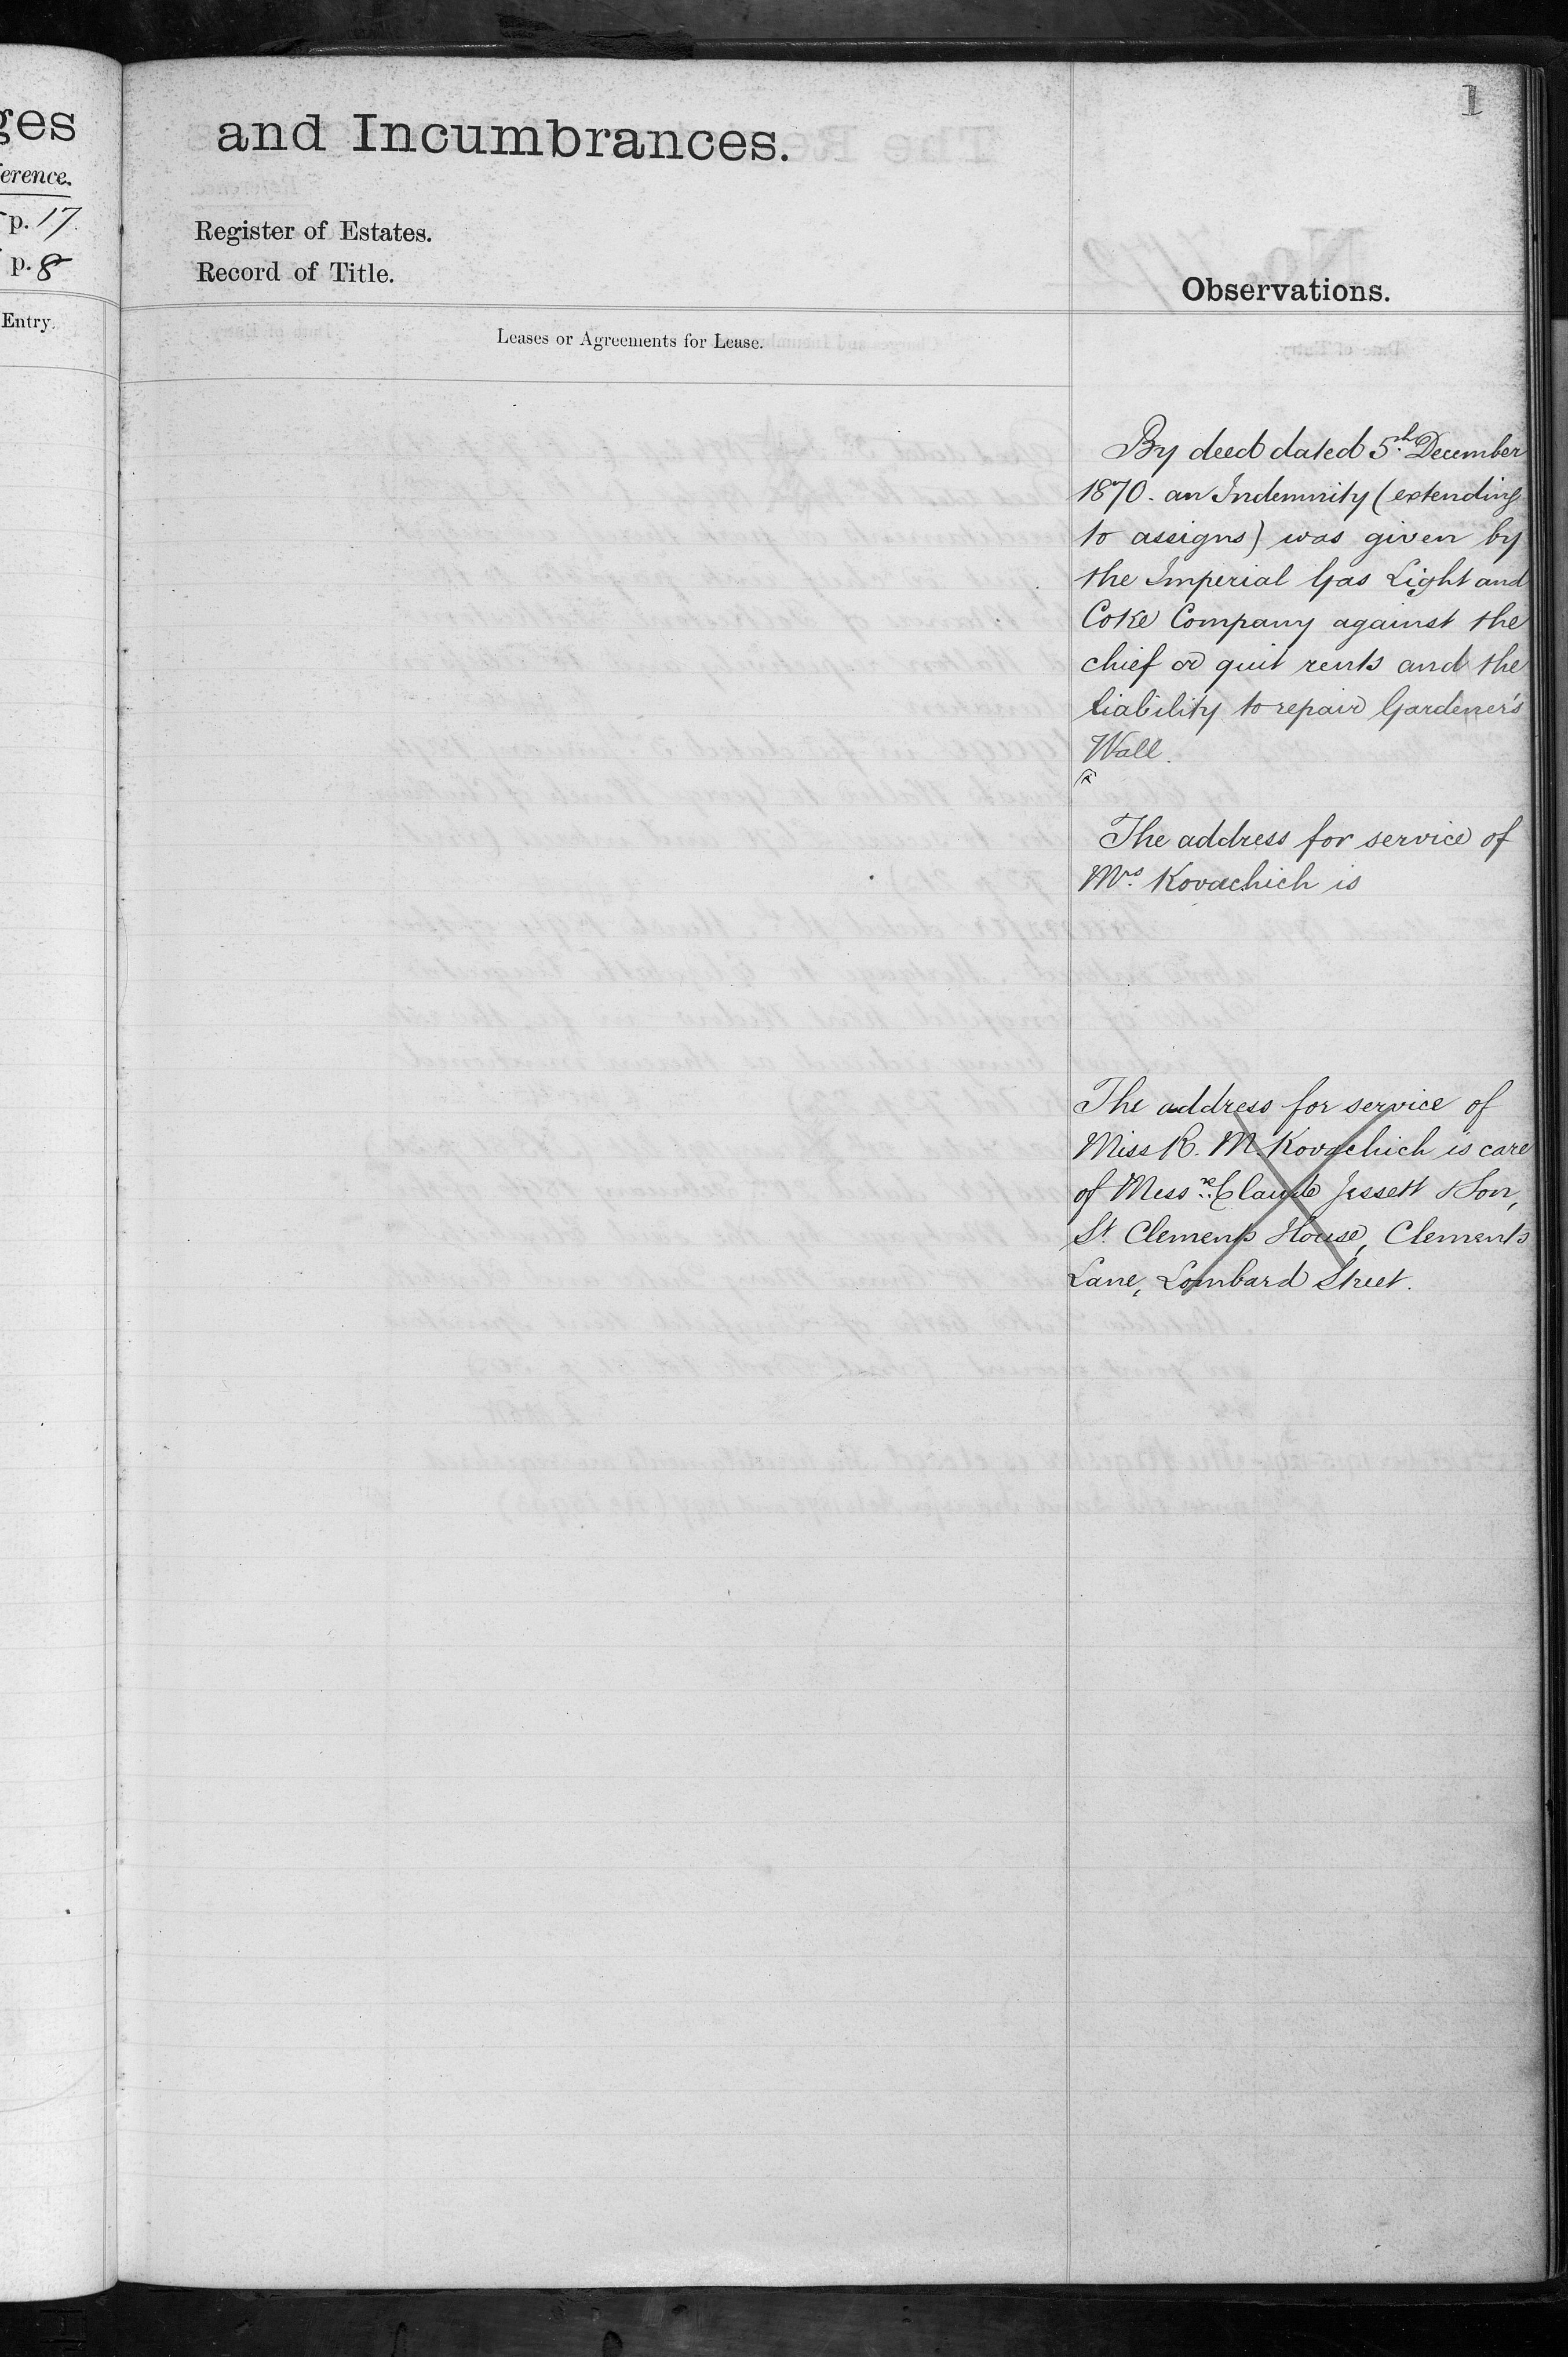 ges
erence.
p. 17.
p. 8
Entry.
1
and Incumbrances.
Register of Estates.
Record of Title.
Observations.
Leases or Agreements for Lease.
By deed dated 5th December
1870. an Indemnity (extending
to assigns) was given by
the Imperial Gas Light and
Coke Company against the
chief or quit rents and the
liability to repair Gardener's
Wall.
The address for service of
Mrs. Kovachich is
The address for service of
Miss R. M. Kovachich is care
of Messrs. Claude Jessett & Son,
St. Clements House, Clements
Lane, Lombard Street.